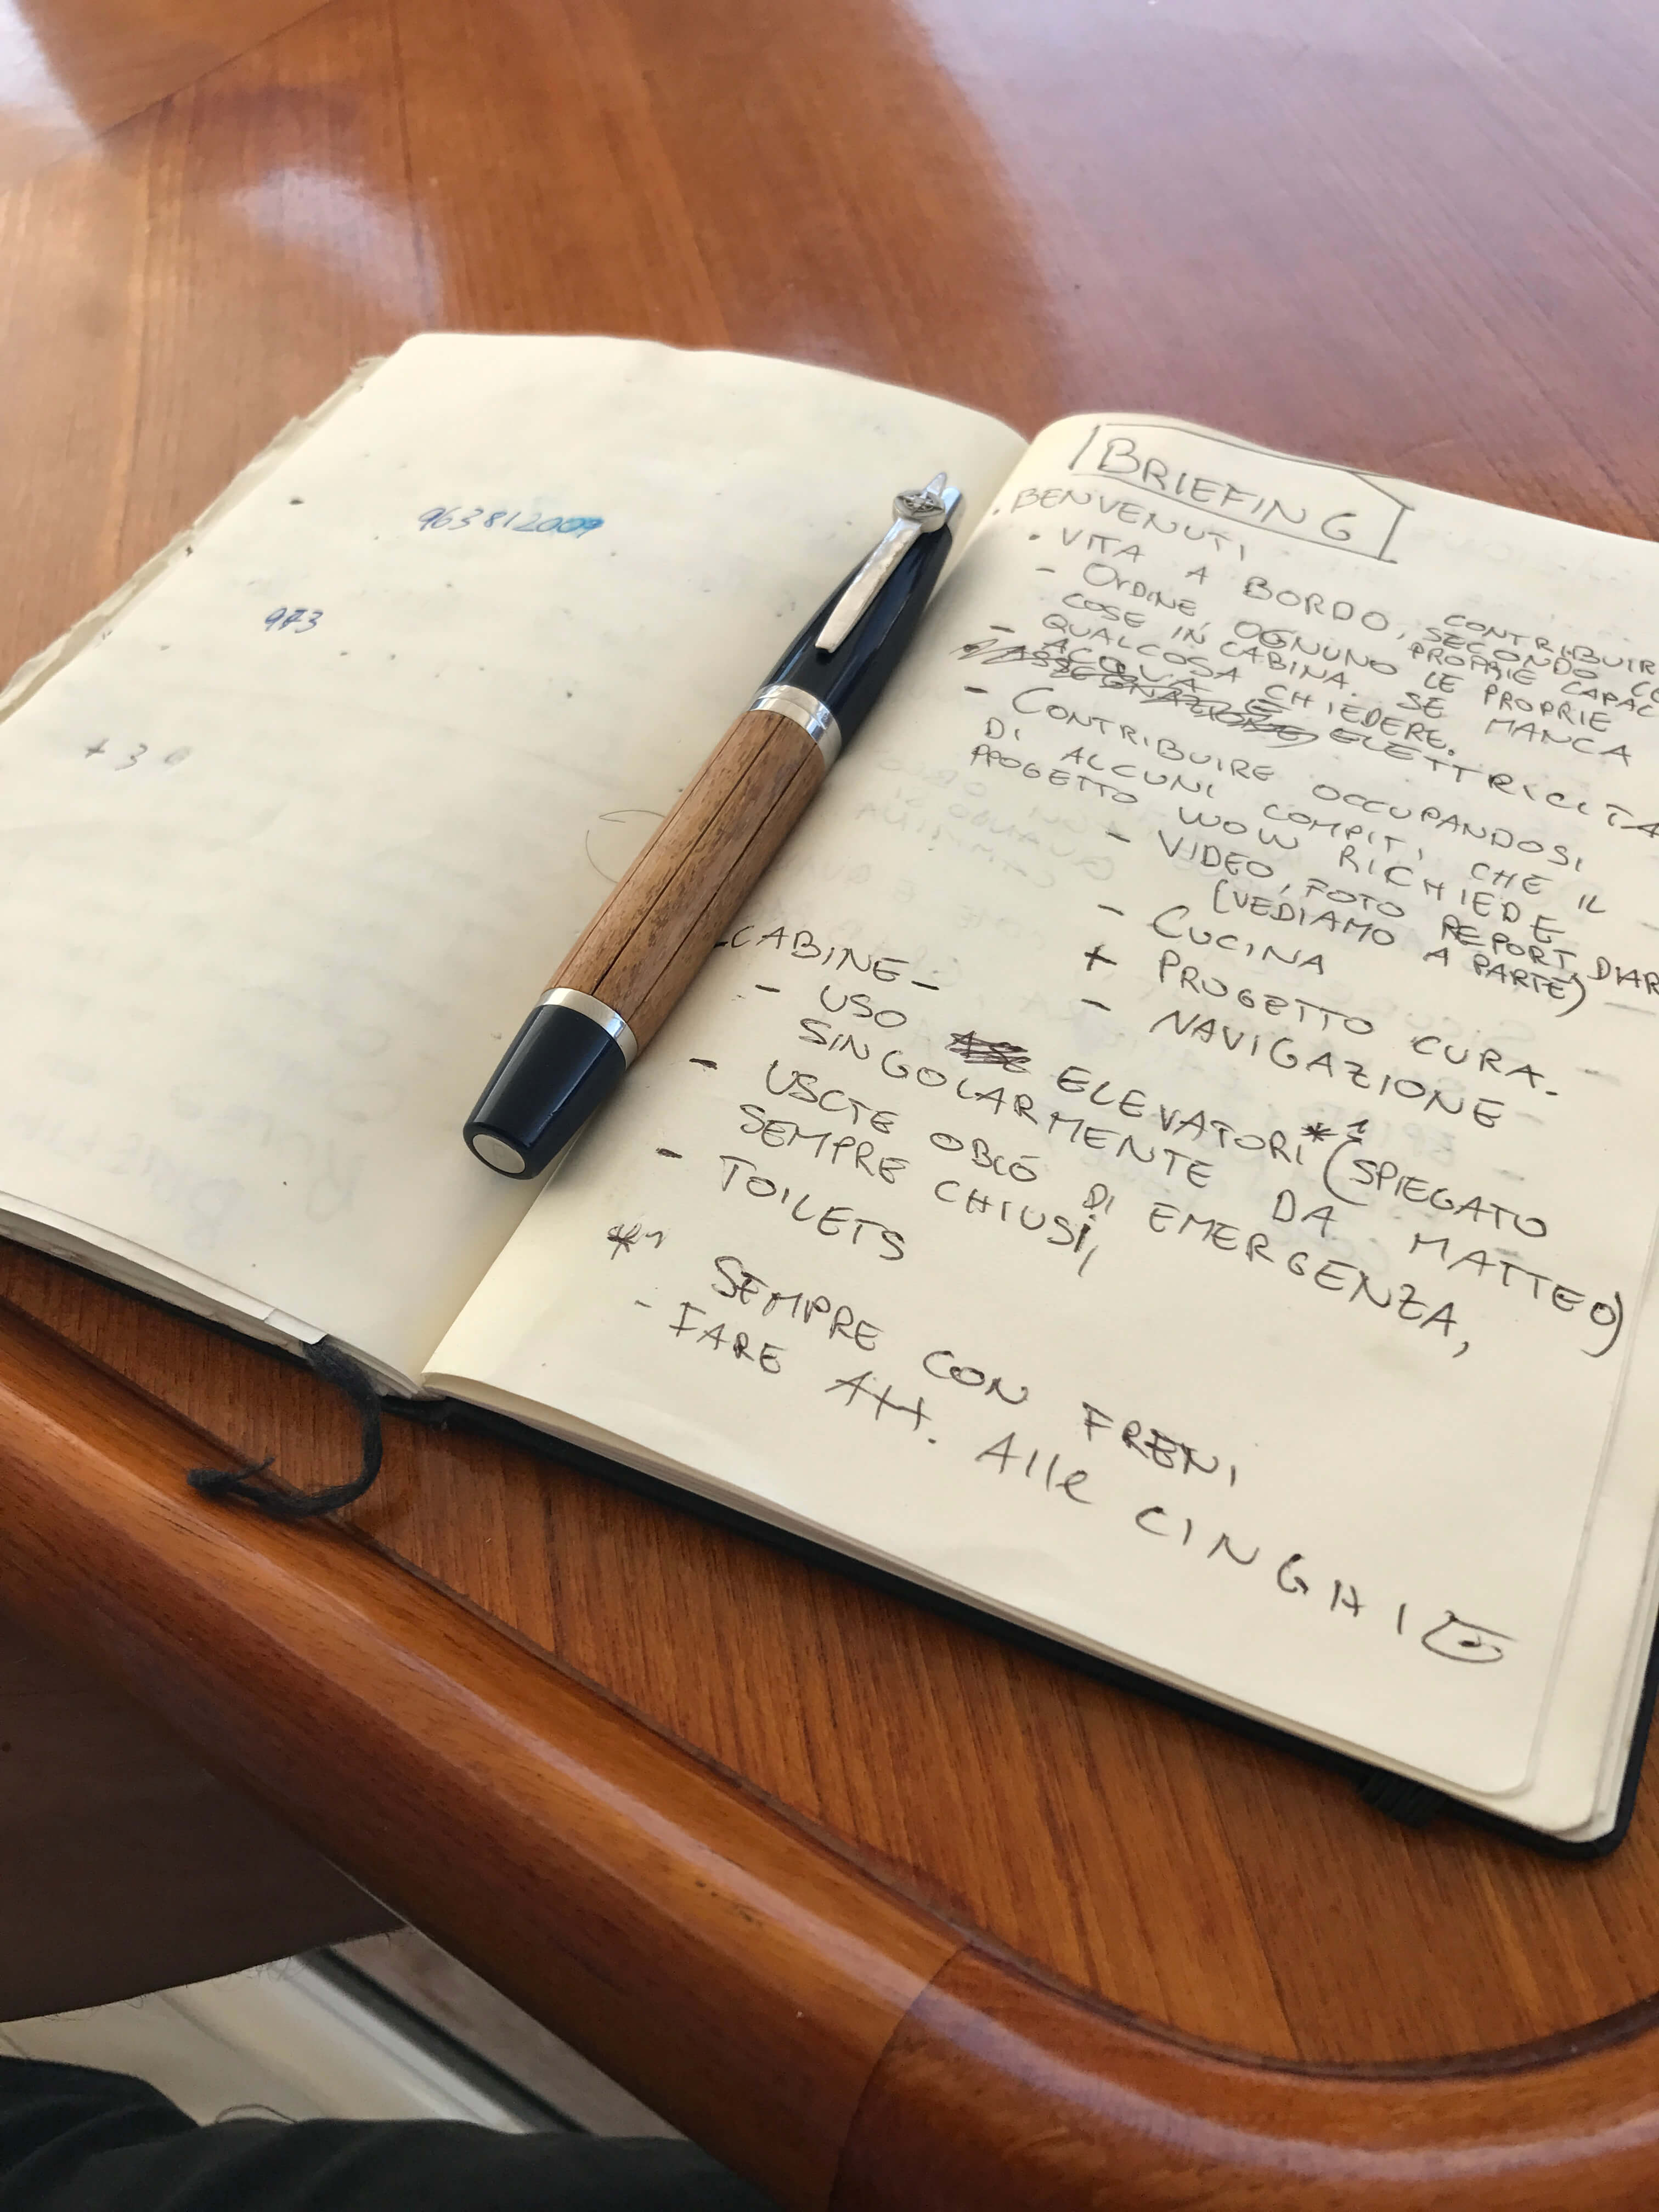 963812009
973
+ 3
BRIEFING
• BENVENUTI
• VITA A BORDO, CONTRIBUIR
SECONDO
PROPRIE CAPAC
- ORDINE, OGNUNO LE PROPRIE
COSE IN CABINA. SE MANCA
QUALCOSA CHIEDERE.
- ACQUA E ELETTRICITA
ASSEGNAZIONE
- CONTRIBUIRE OCCUPANDOSI
DI ALCUNI COMPITI CHE IL
PROGETTO WOW RICHIEDE
- VIDEO, FOTO REPORT DIAR
(VEDIAMO A PARTE)
- CUCINA
+ PROGETTO CURA.
- NAVIGAZIONE
-CABINE-
- USO ELEVATORI *1 (SPIEGATO
SINGOLARMENTE DA MATTEO)
- USCTE OBLÒ DI EMERGENZA,
SEMPRE CHIUSI,
- TOILETS
*1 SEMPRE CON FRENI
- FARE Att. Alle CINGHIE